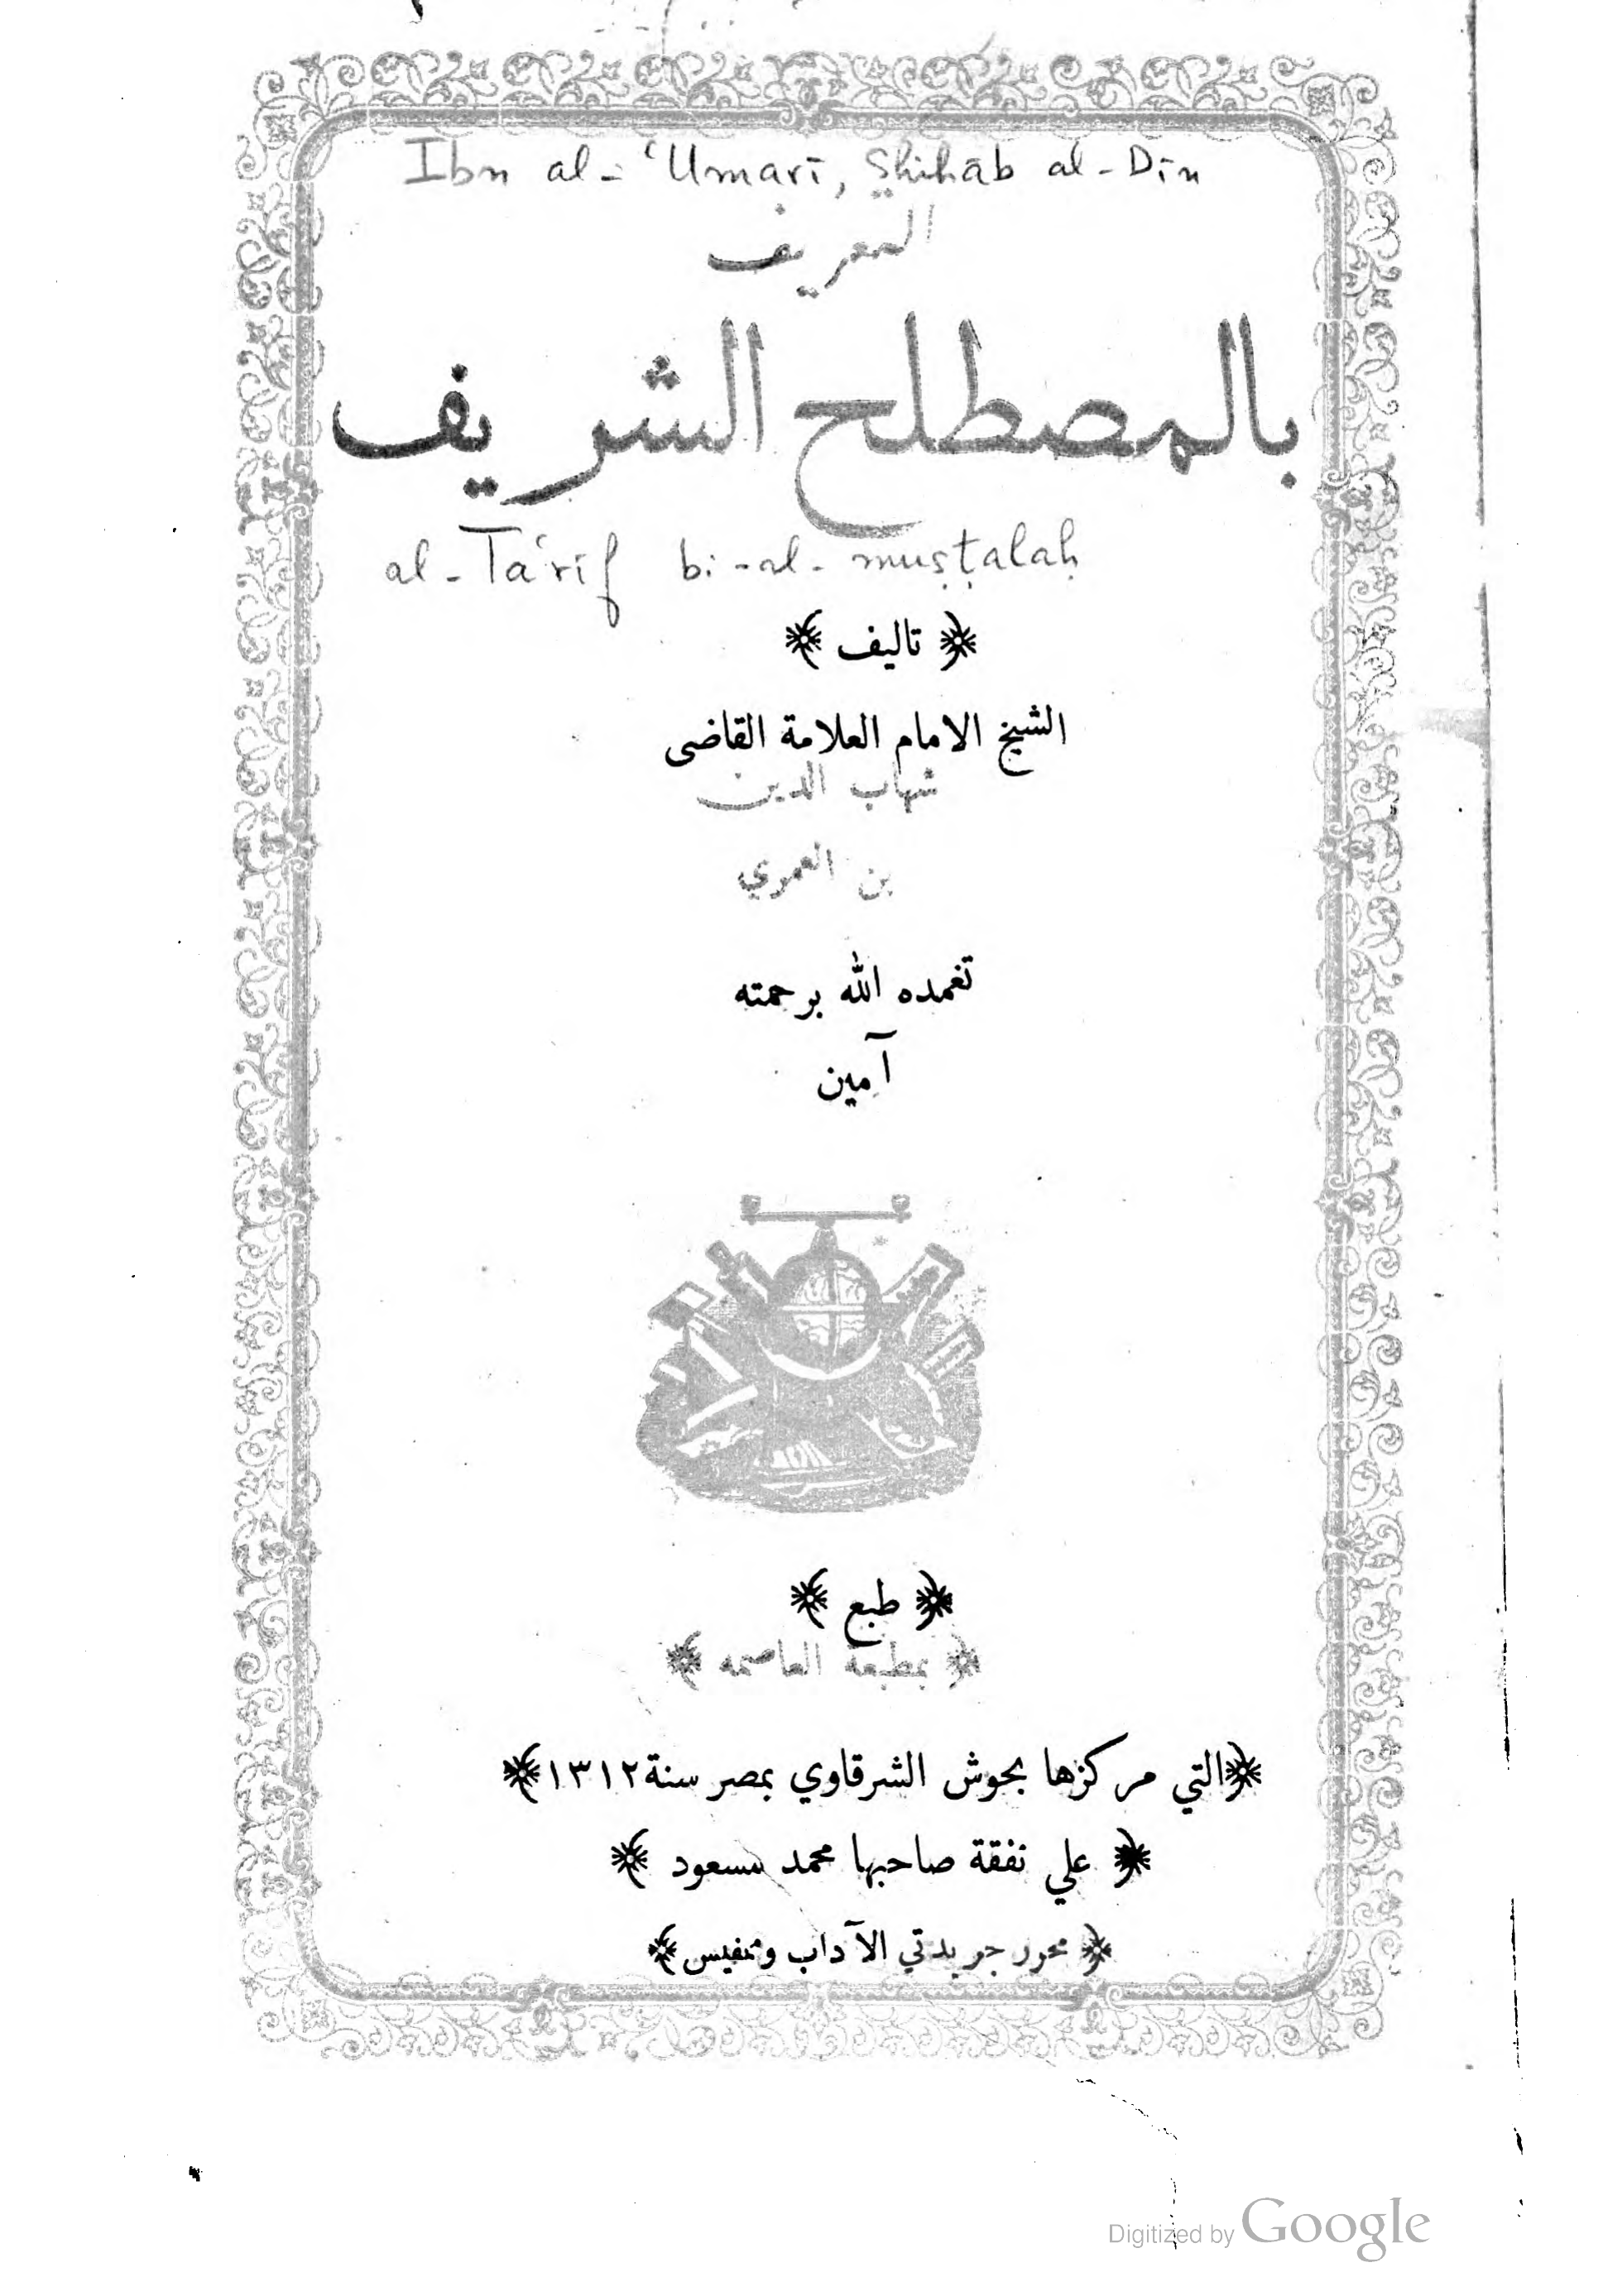 Ibn al-'Umarī, Shihāb al-Dīn
التعريف
بالمصطلح الشريف
al-Ta'rīf bi-al-muṣṭalaḥ
﴿ تاليف ﴾
الشيخ الامام العلامة القاضى
شهاب الدين
بن العمري
تغمده الله برحمته
آمين
﴿ طبع ﴾
﴿ بمطبعة العاصمه ﴾
﴿التي مركزها بحوش الشرقاوي بمصر سنة ١٣١٢﴾
﴿ علي نفقة صاحبها محمد مسعود ﴾
﴿ محرر جريدتي الآداب ومنفيس﴾
Digitized by Google